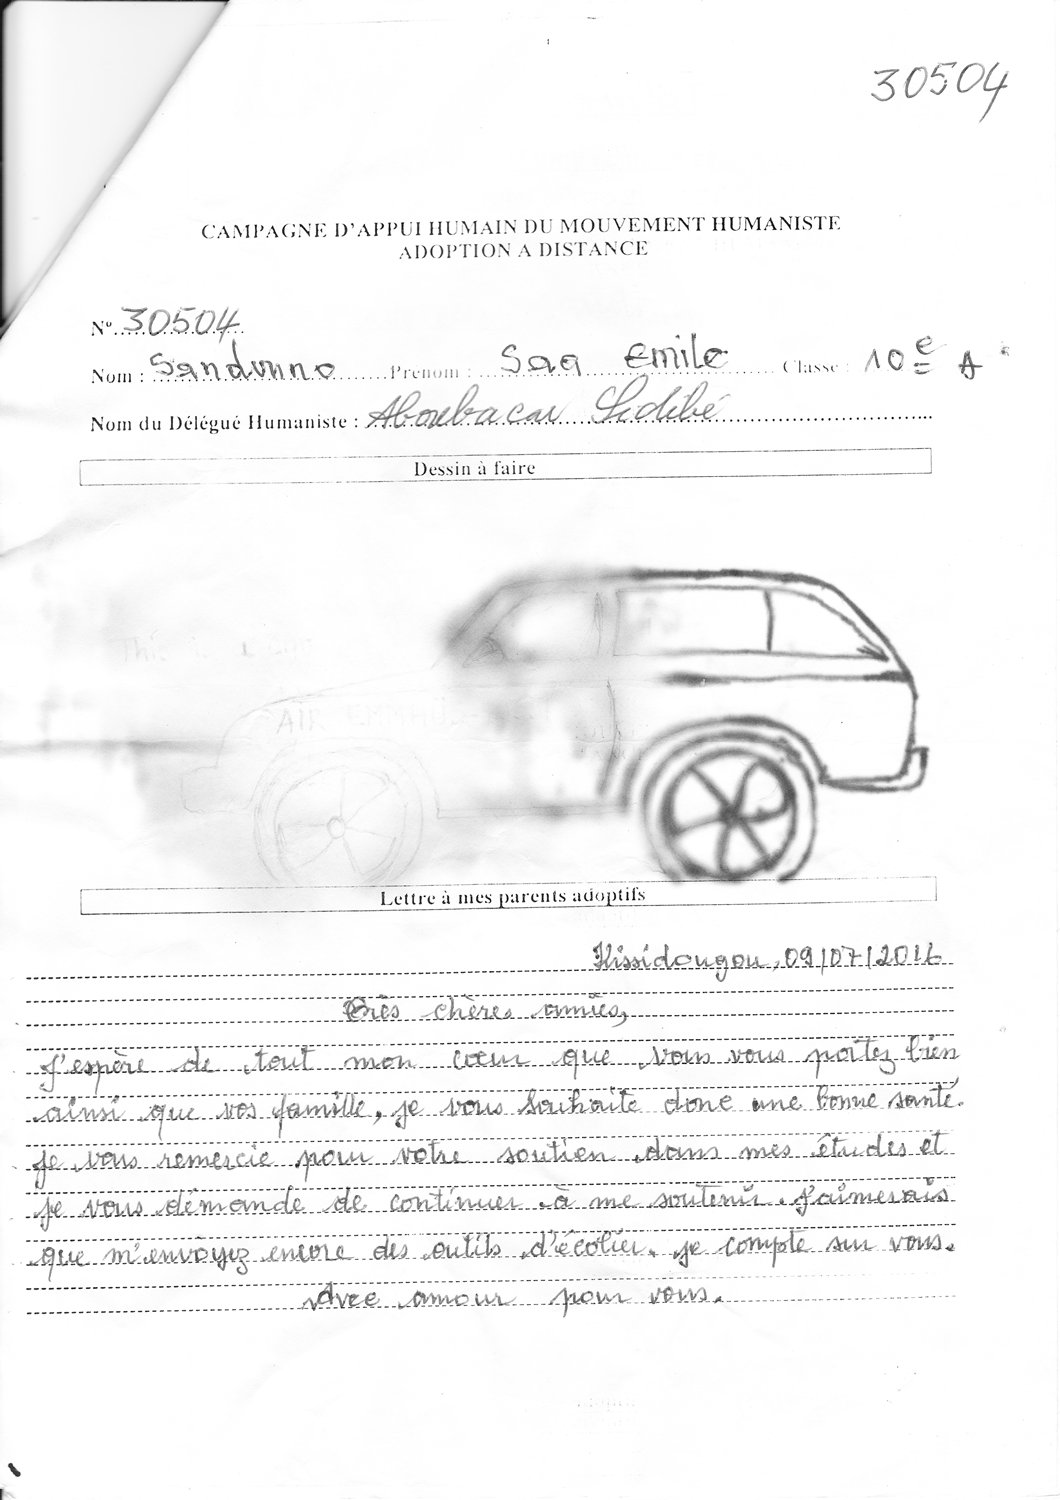 30504
CAMPAGNE D'APPUI HUMAIN DU MOUVEMENT HUMANISTE
ADOPTION A DISTANCE
N° 30504
Nom : Sandouno Prenom : Saa Emile Classe : 10e A
Nom du Délégué Humaniste : Aboubacar Sidibé
Dessin à faire
AIR
Lettre à mes parents adoptifs
Kissidougou, 09/07/2016
Très chères amies,
J'espère de tout mon cœur que vous vous portez bien
ainsi que vos famille, je vous souhaite donc une bonne santé.
Je vous remercie pour votre soutien dans mes études et
je vous démande de continuer à me soutenir. J'aimerais
que m'envoyez encore des outils d'écolier. je compte sur vous.
Avec amour pour vous.